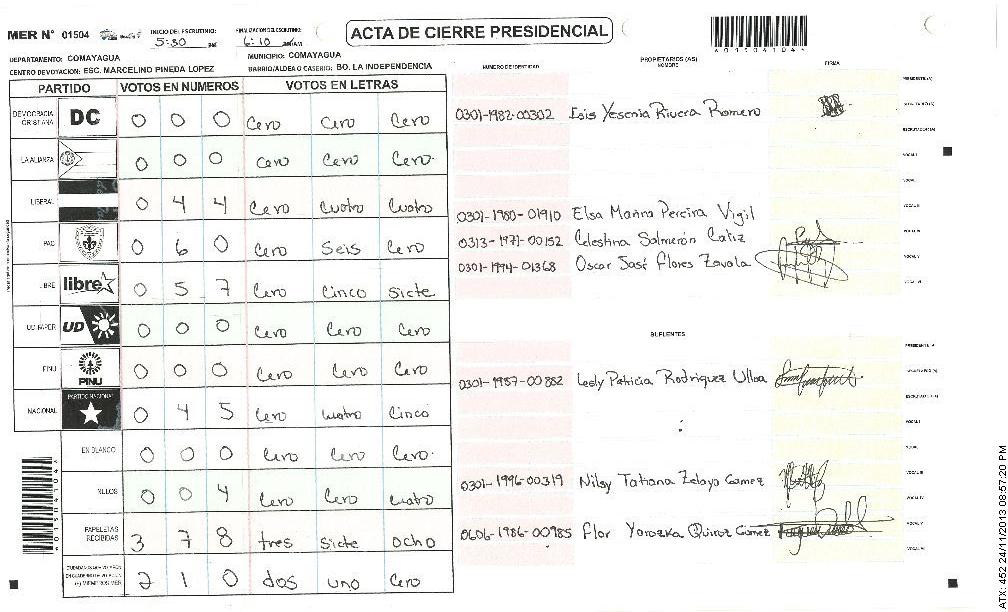 MER N° 01504
INICIO DEL ESCRUTINIO: 5:30 PM
FINALIZACION DEL ESCRUTINIO: 6:10
ACTA DE CIERRE PRESIDENCIAL
DEPARTAMENTO: COMAYAGUA
MUNICIPIO: COMAYAGUA
CENTRO DE VOTACION: ESC. MARCELINO PINEDA LOPEZ
BARRIO/ALDEA O CASERIO: BO. LA INDEPENDENCIA
PARTIDO VOTOS EN NUMEROS VOTOS EN LETRAS
DEMOCRACIA CRISTIANA DC 0 0 0 Cero Cero Cero
LA ALIANZA 0 0 0 Cero Cero Cero
LIBERAL 0 4 4 Cero Cuatro Cuatro
PAC 0 6 0 Cero Seis Cero
LIBRE libre 0 5 7 Cero Cinco Siete
UD FAPER UD 0 0 0 Cero Cero Cero
PINU PINU 0 0 0 Cero Cero Cero
NACIONAL PARTIDO NACIONAL 0 4 5 Cero Cuatro Cinco
EN BLANCO 0 0 0 Cero Cero Cero
NULOS 0 0 4 Cero Cero Cuatro
PAPELETAS RECIBIDAS 3 7 8 tres siete ocho
CIUDADANOS QUE VOTARON 2 1 0 dos uno Cero
NUMERO DE IDENTIDAD
PROPIETARIOS (AS)
NOMBRE
FIRMA
PRESIDENTE (A)
SECRETARIO (A)
ESCRUTADOR (A)
VOCAL I
0301-1982-00302 Isis Yesenia Rivera Romero
0301-1980-01910 Elsa Marina Pereira Vigil
0313-1971-00152 Celestina Salmerón Caliz
0301-1994-01368 Oscar José Flores Zavala
SUPLENTES
0301-1987-00882 Lesly Patricia Rodriguez Ulloa
0301-1996-00319 Nilsy Tatiana Zelaya Gamez
0606-1986-00985 Flor Yorozka Quiroz Gomez
4015041044
ATX: 452 24/11/2013 08:57:20 PM